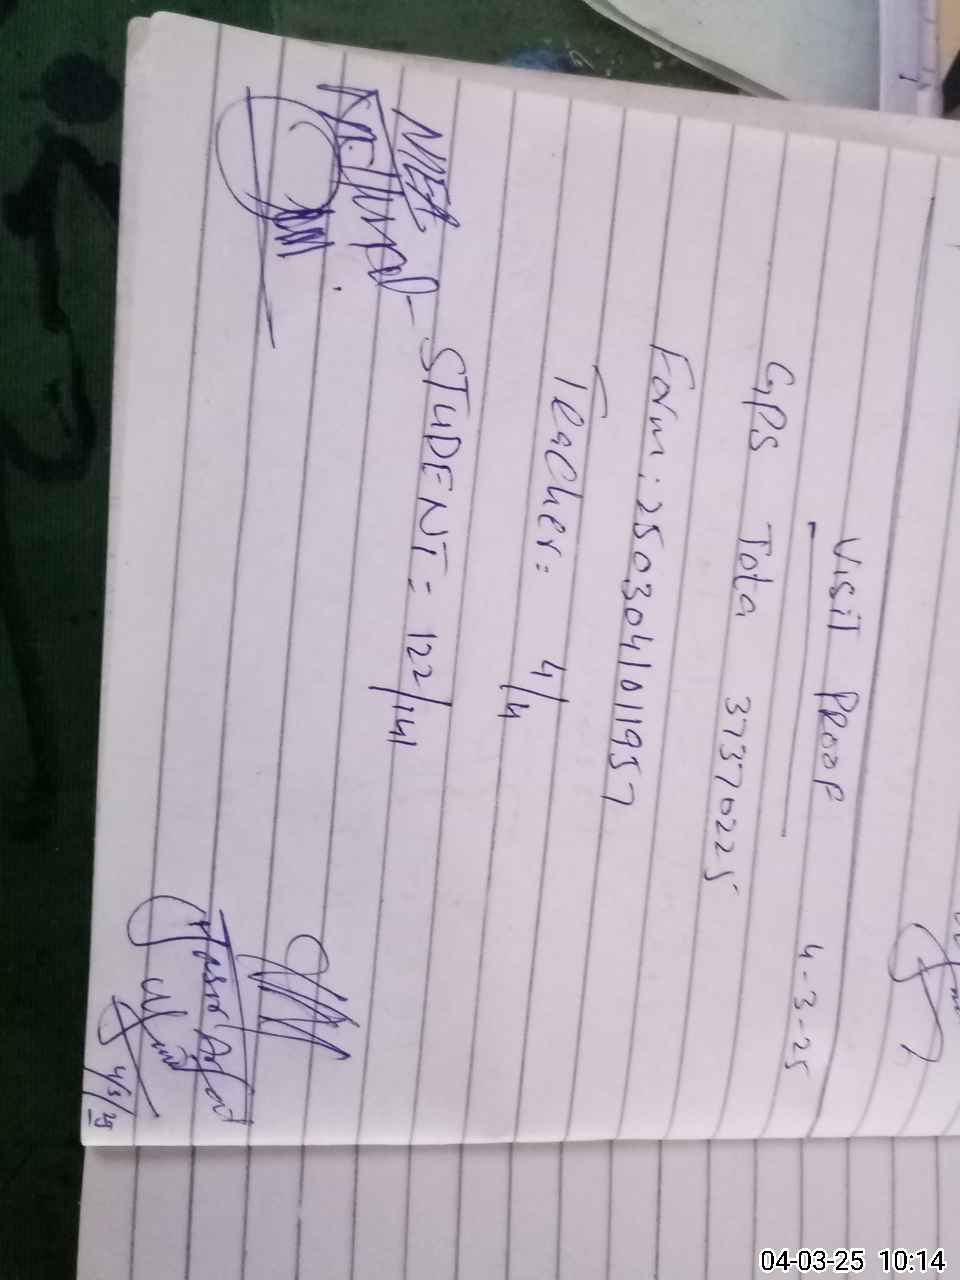 Visit PROOF
4-3-25
GPS Tota 37370225
Form: 250304101957
Teacher: 4/4
STUDENT = 122/141
4/3/25
04-03-25 10:14